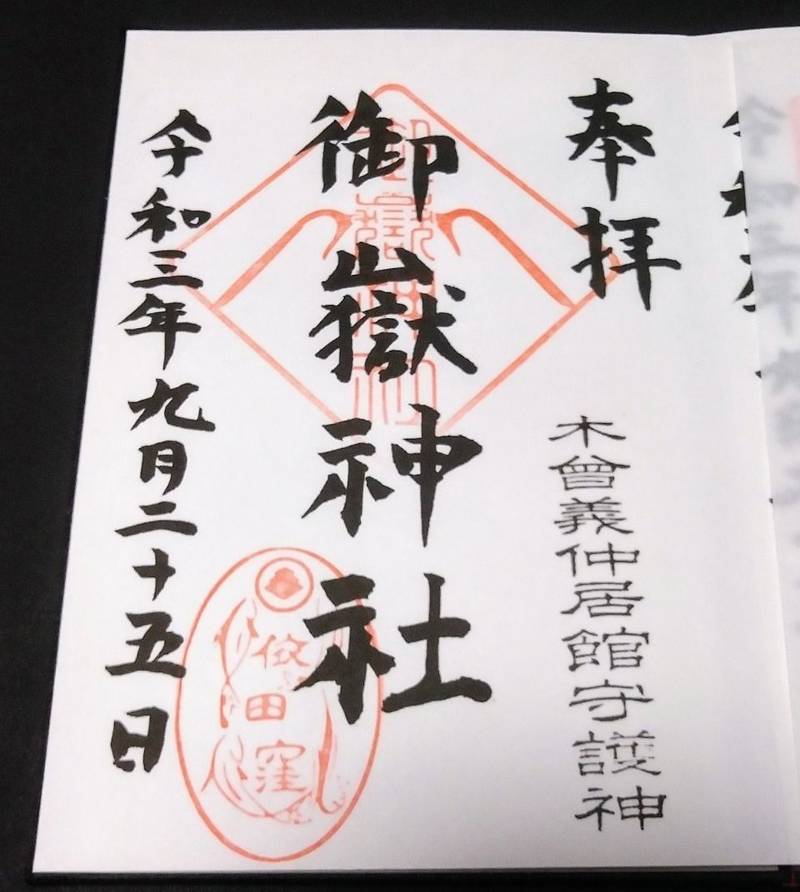 奉拝
木曾義仲居館守護神
御嶽神社
依田窪
令和三年九月二十五日